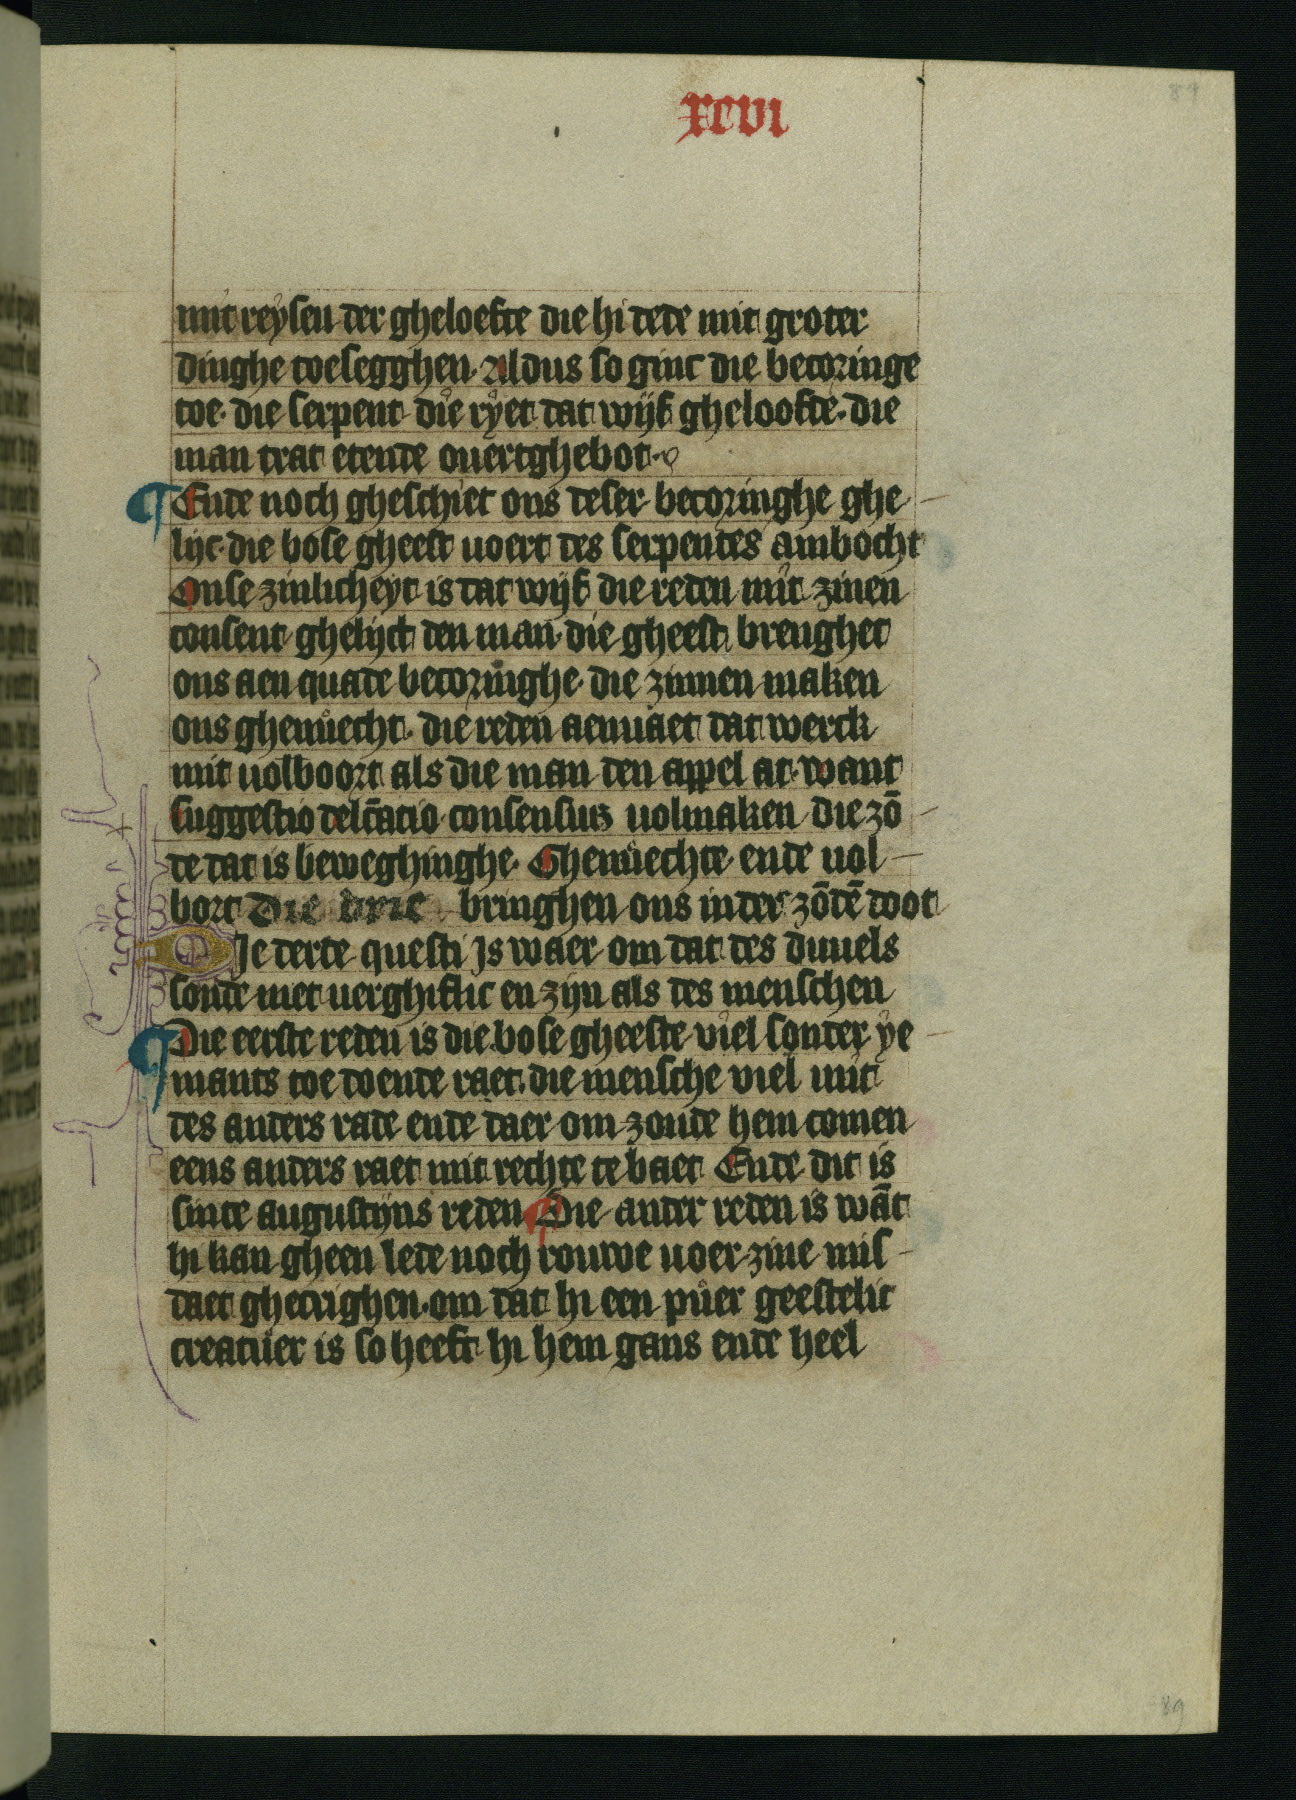 xcvi
89
mit reysen der gheloefte die hi dede mit groter
dinghe toesegghen. Aldus so ginc die becoringe
toe. die serpent die ryet dat wijf gheloofte. die
man trat etende ouertghebot.
¶ Ende noch gheschiet ons deser becoringhe ghe
lijc. die bose gheest uoert des serpentes ambocht
Onse zinlicheyt is dat wijf die reden mit zinen
consent ghelijct den man. die gheest brenghet
ons aen quade becoringhe. die zinnen maken
ons ghenuecht. die reden aenuaet dat werck
mit uolboort als die man den appel at. want
suggestio delc̄tatio consensus uolmaken die zō
de dat is beweghinghe. Ghenuechte. ende uol
bort Die drie bringhen ons in der zōdē doot
Die derte questi Is waer om dat des duuels
sonde niet uerghiflic en zijn als des menschen
¶ Die eerste reden is die bose gheeste viel sonder ye
mants toe doende raet. die mensche viel mit
des anders rade ende daer om zonde hem comen
eens anders raet mit rechte te baet Ende dit is
sinte augustijns reden ¶ Die ander reden is wāt
hi kan gheen lede noch rouwe uoer zine mis
daet ghecrighen. om dat hi een puer geestelic
creatuer is so heeft hi hem gans ende heel
89